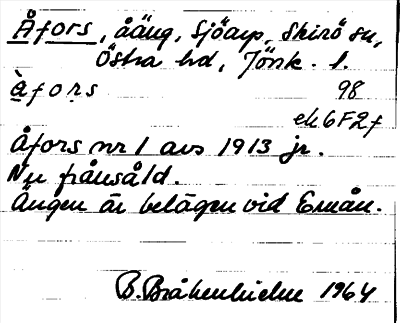 Åfors, åäng, Sjöarp, Skirö sn,
Östra hd, Jönk. l.
àfo̤rs 98
ek 6F2f
Åfors nr 1 avs 1913 jr.
Nu frånsåld.
Ängen är belägen vid Emån.
B. Bråkenhielm 1964